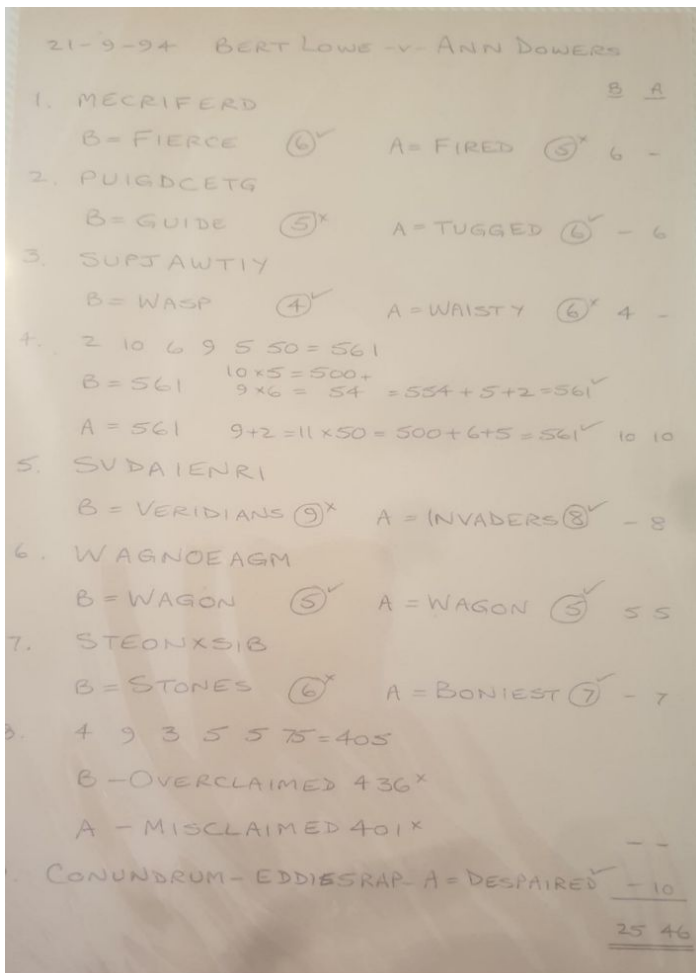 21-9-94 BERT LOWE -v- ANN DOWERS
B A
1. MECRIFERD
B = FIERCE 6✓ A = FIRED 5x 6 -
2. PUIGDCETG
B = GUIDE 5x A = TUGGED 6✓ - 6
3. SUPJAWTIY
B = WASP 4✓ A = WAISTY 6x 4 -
4. 2 10 6 9 5 50 = 561
10 x 5 = 500 +
B = 561 9 x 6 = 54 = 554 + 5 + 2 = 561✓
A = 561 9 + 2 = 11 x 50 = 500 + 6 + 5 = 561✓ 10 10
5. SVDAIENRI
B = VERIDIANS 9x A = INVADERS 8✓ - 8
6. WAGNOEAGM
B = WAGON 5✓ A = WAGON 5✓ 5 5
7. STEONXSIB
B = STONES 6x A = BONIEST 7✓ - 7
4 9 3 5 5 75 = 405
B - OVERCLAIMED 436x
A - MISCLAIMED 401x
- -
CONUNDRUM - EDDIESRAP - A = DESPAIRED✓ - 10
25 46